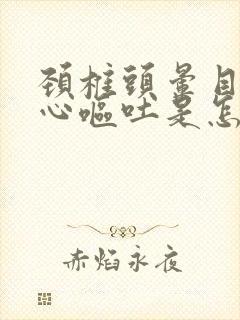 頚椎頭暈目
心嘔吐是怎
赤焰永夜